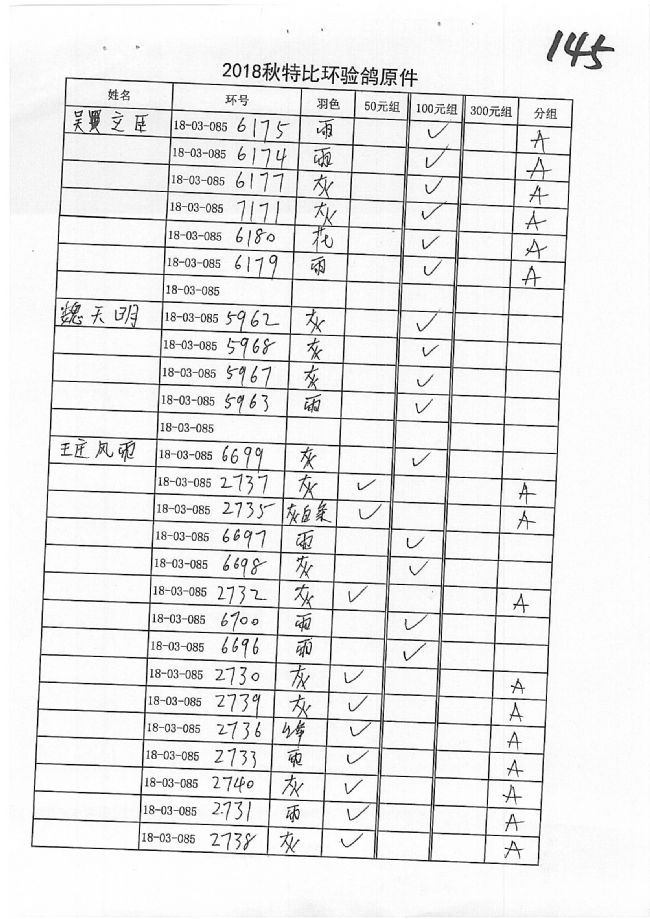 145
2018秋特比环验鸽原件
姓名 环号 羽色 50元组 100元组 300元组 分组
吴翼 立臣 18-03-085 6175 雨 ✓ A
18-03-085 6174 雨 ✓ A
18-03-085 6177 灰 ✓ A
18-03-085 7171 灰 ✓ A
18-03-085 6180 花 ✓ A
18-03-085 6179 雨 ✓ A
18-03-085
魏天明 18-03-085 5962 灰 ✓
18-03-085 5968 灰 ✓
18-03-085 5967 灰 ✓
18-03-085 5963 雨 ✓
18-03-085
王庄风雨 18-03-085 6699 灰 ✓
18-03-085 2737 灰 ✓ A
18-03-085 2735 灰白条 ✓ A
18-03-085 6697 雨 ✓
18-03-085 6698 灰 ✓
18-03-085 2732 灰 ✓ A
18-03-085 6700 雨 ✓
18-03-085 6696 雨 ✓
18-03-085 2730 灰 ✓ A
18-03-085 2739 灰 ✓ A
18-03-085 2736 ✓ A
18-03-085 2733 雨 ✓ A
18-03-085 2740 灰 ✓ A
18-03-085 2731 雨 ✓ A
18-03-085 2738 灰 ✓ A